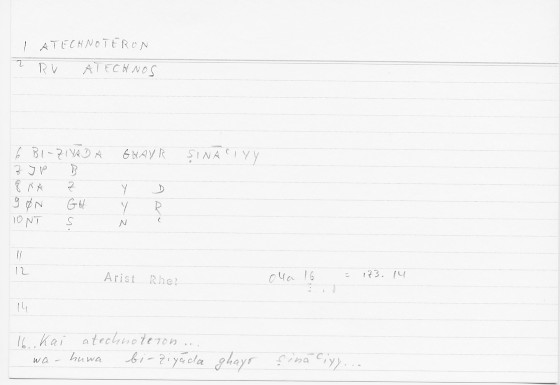 1 ATECHNOTERON
2 RV ATECHNOS
6 BI-ZIYĀDA GHAYR ṢINĀʿIYY
7 JP B
8 KA Z Y D
9 ØN GH Y R
10 NT Ṣ N ʿ
11
12 Arist Rhet 04a 16 = 173. 14
14
16.. Kai atechnoteron...
wa-huwa bi-ziyāda ghayr ṣināʿiyy...